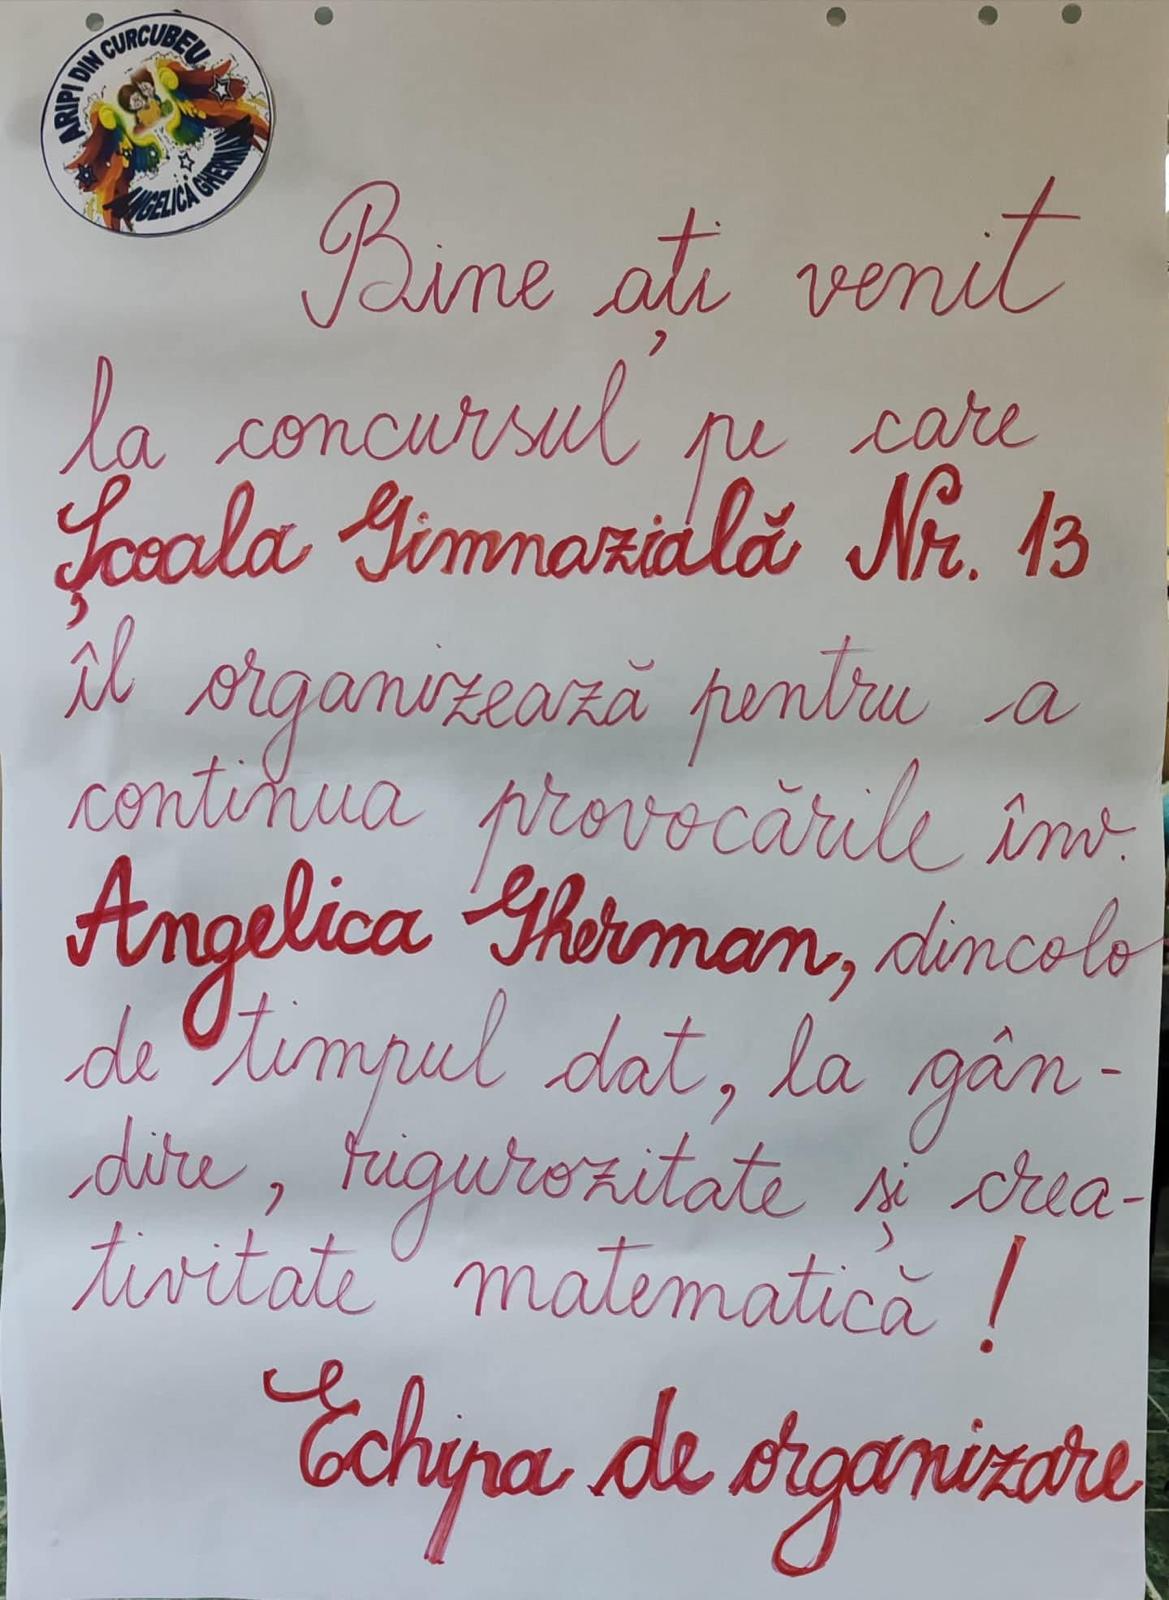 ARIPI DIN CURCUBEU
ANGELICA GHERMAN
Bine ați venit
la concursul pe care
Școala Gimnazială Nr. 13
îl organizează pentru a
continua provocările înv.
Angelica Gherman, dincolo
de timpul dat, la gân-
dire, rigurozitate și crea-
tivitate matematică !
Echipa de organizare